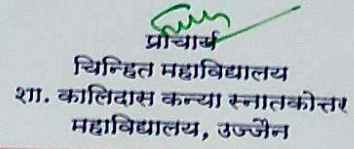 प्राचार्य
चिन्हित महाविद्यालय
शा. कालिदास कन्या स्नातकोत्तर
महाविद्यालय, उज्जैन